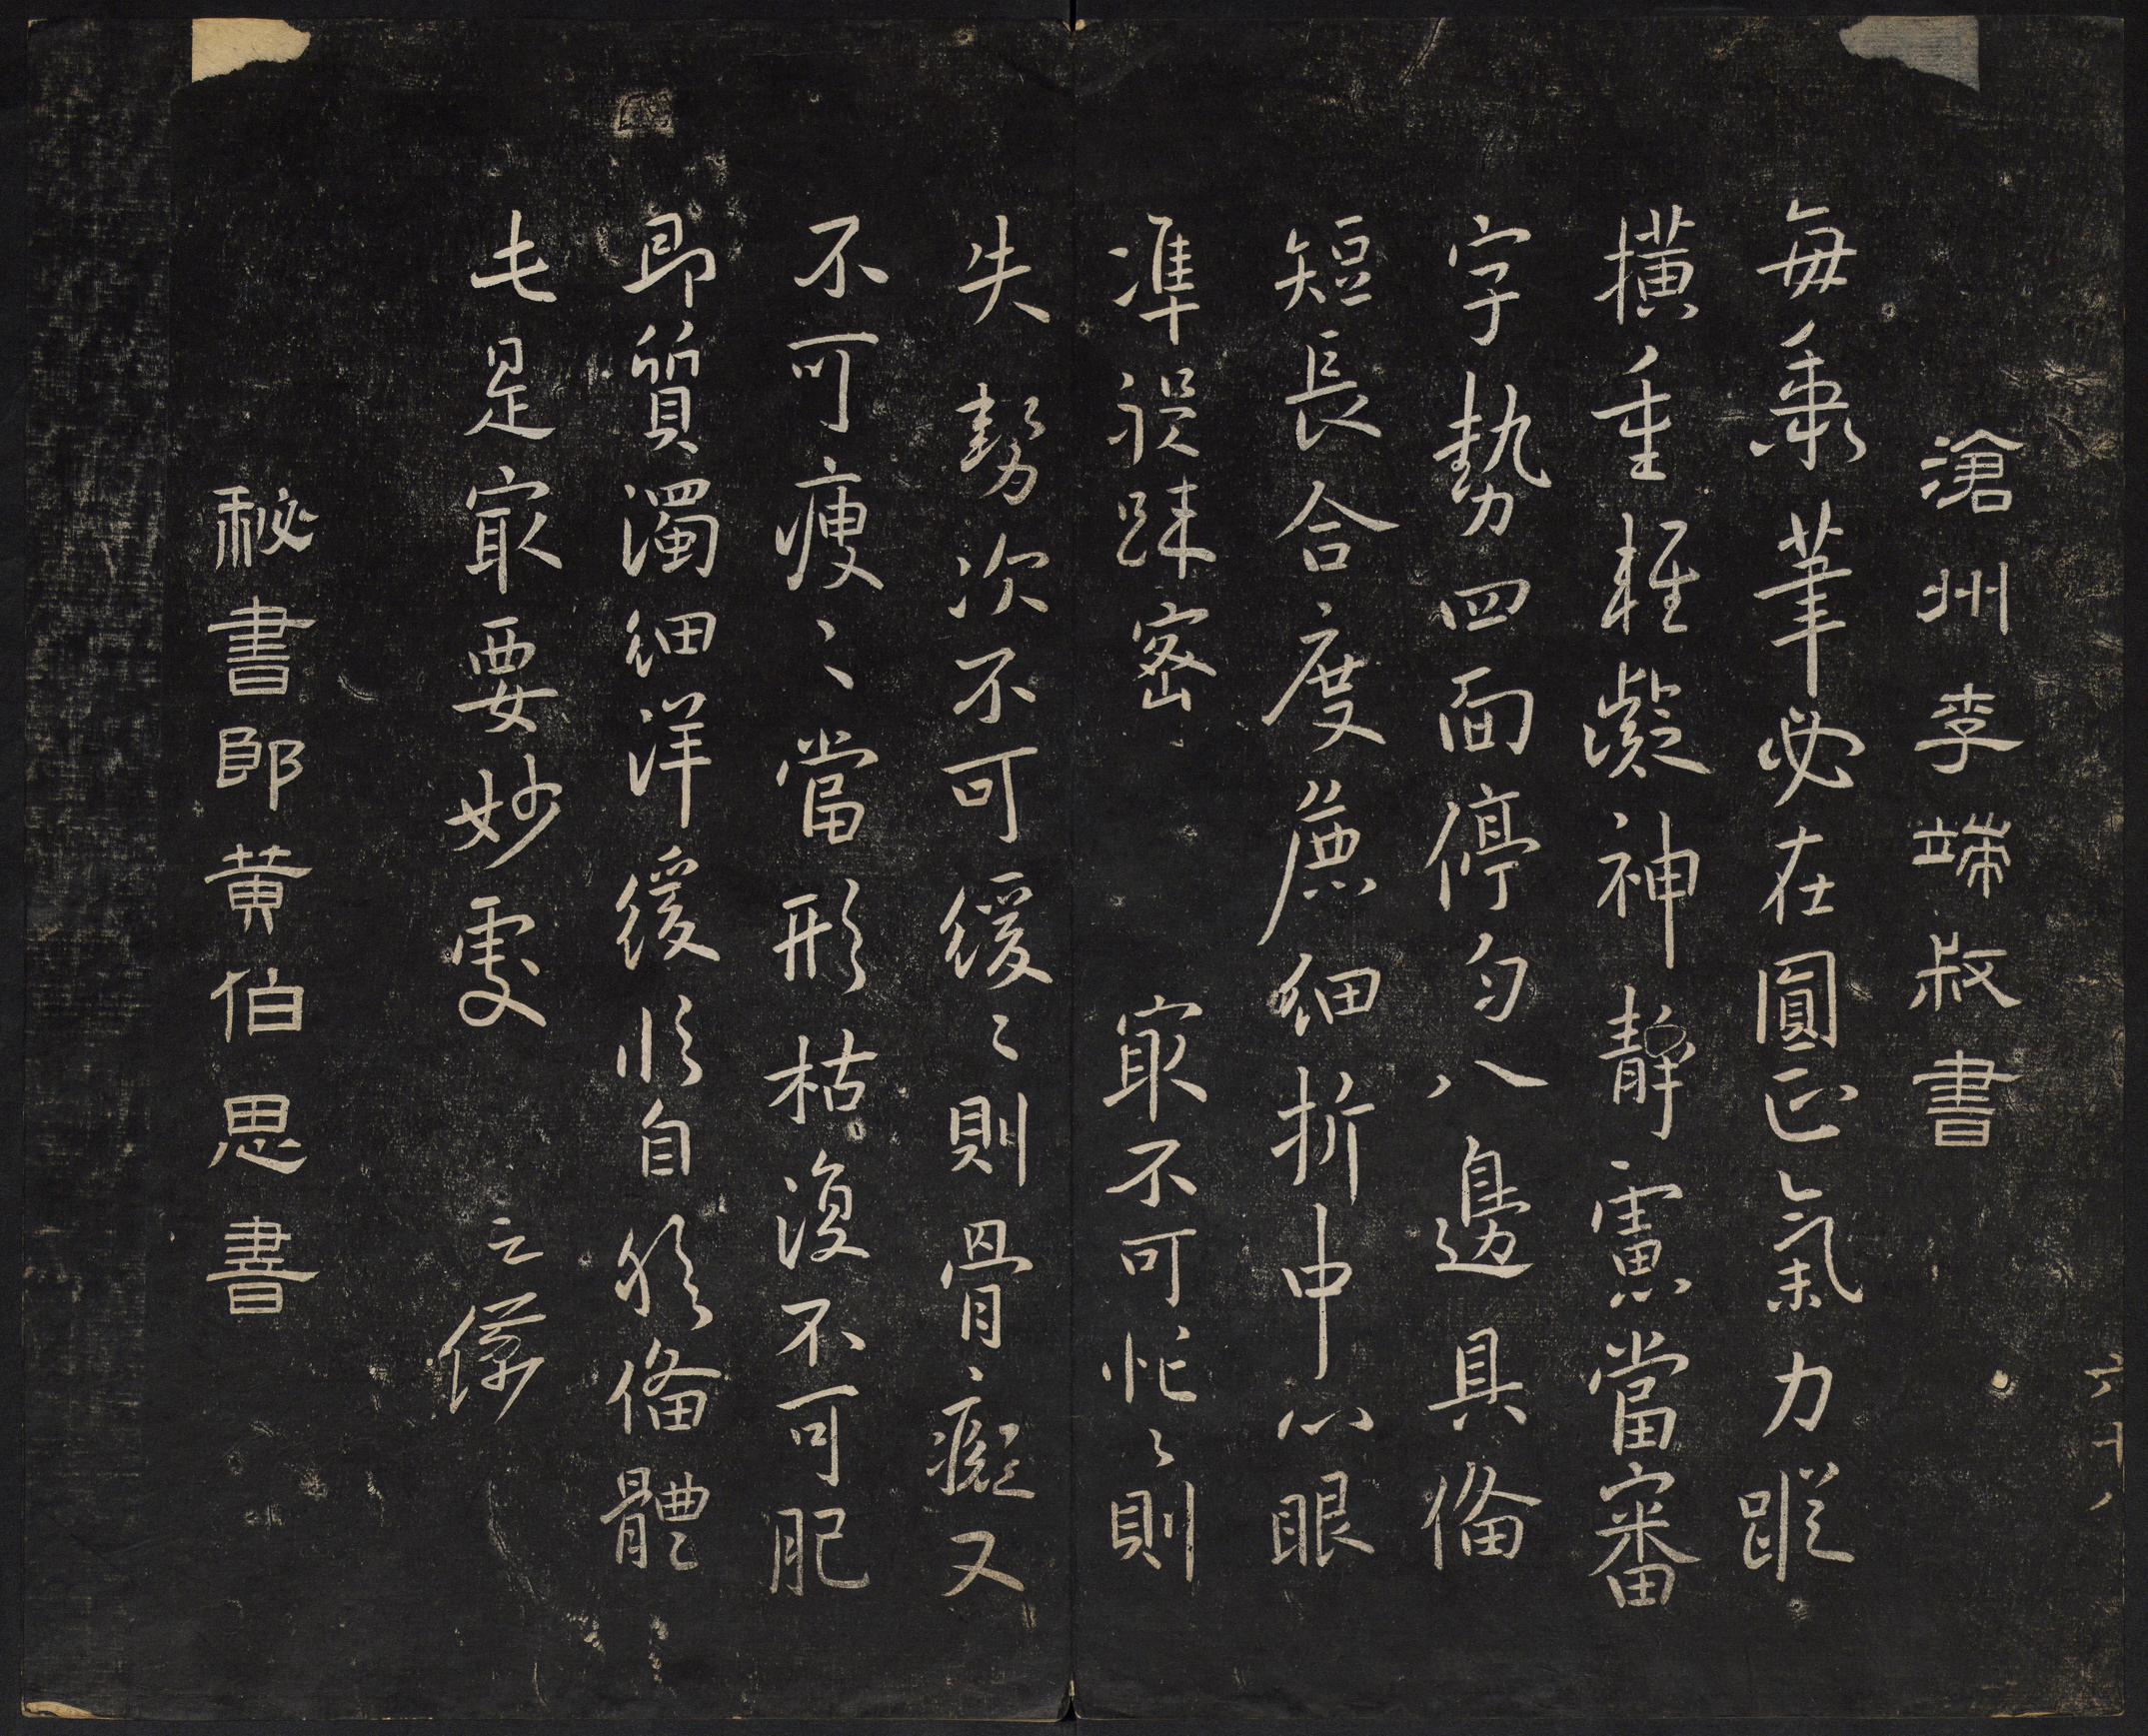 滄州李端叔書
每秉筆必在圓正氣力蹤
横重輕凝神靜慮當審
字勢四面停勻八邊具俻
短長合度麁細折中心眼
准程踈密　最不可忙〻則
失勢次不可緩〻則骨癡又
不可痩〻當形枯復不可肥
即質濁細詳緩臨自然俻體
此是最要妙處　之儀
秘書郎黄伯思書
六十八